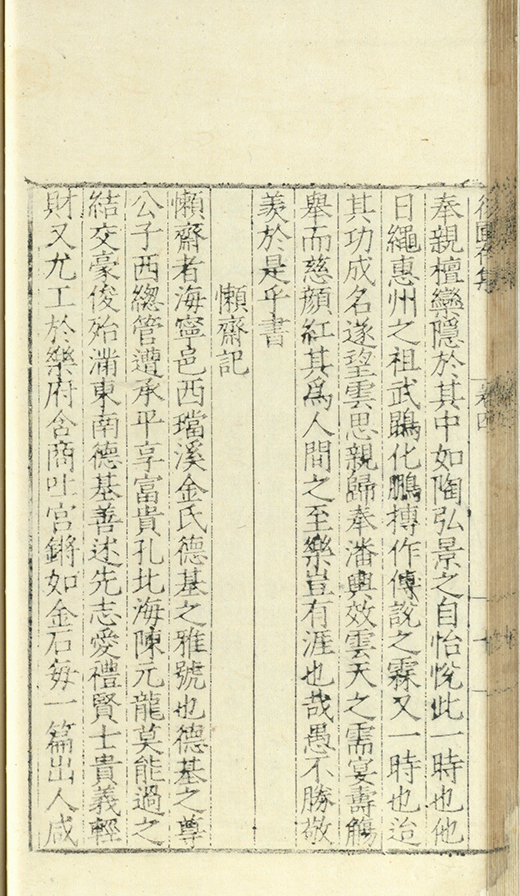 奉親檀欒隱於其中如陶弘景之自怡悅此一時也他
日繩惠州之祖武鵾化鵬摶作傅說之霖又一時也迨
其功成名遂望雲思親歸奉潘輿效雲天之需宴壽觴
舉而慈顏紅其爲人間之至樂豈有涯也哉愚不勝敬
羨於是乎書
懶齋記
懶齋者海寧邑西璫溪金氏德基之雅號也德基之尊
公子西緫管遭承平享富貴孔北海陳元龍莫能過之
結交豪俊殆滿東南德基善述先志愛禮賢士貴義輕
財又尤工於樂府含商吐宮鏘如金石每一篇出人咸